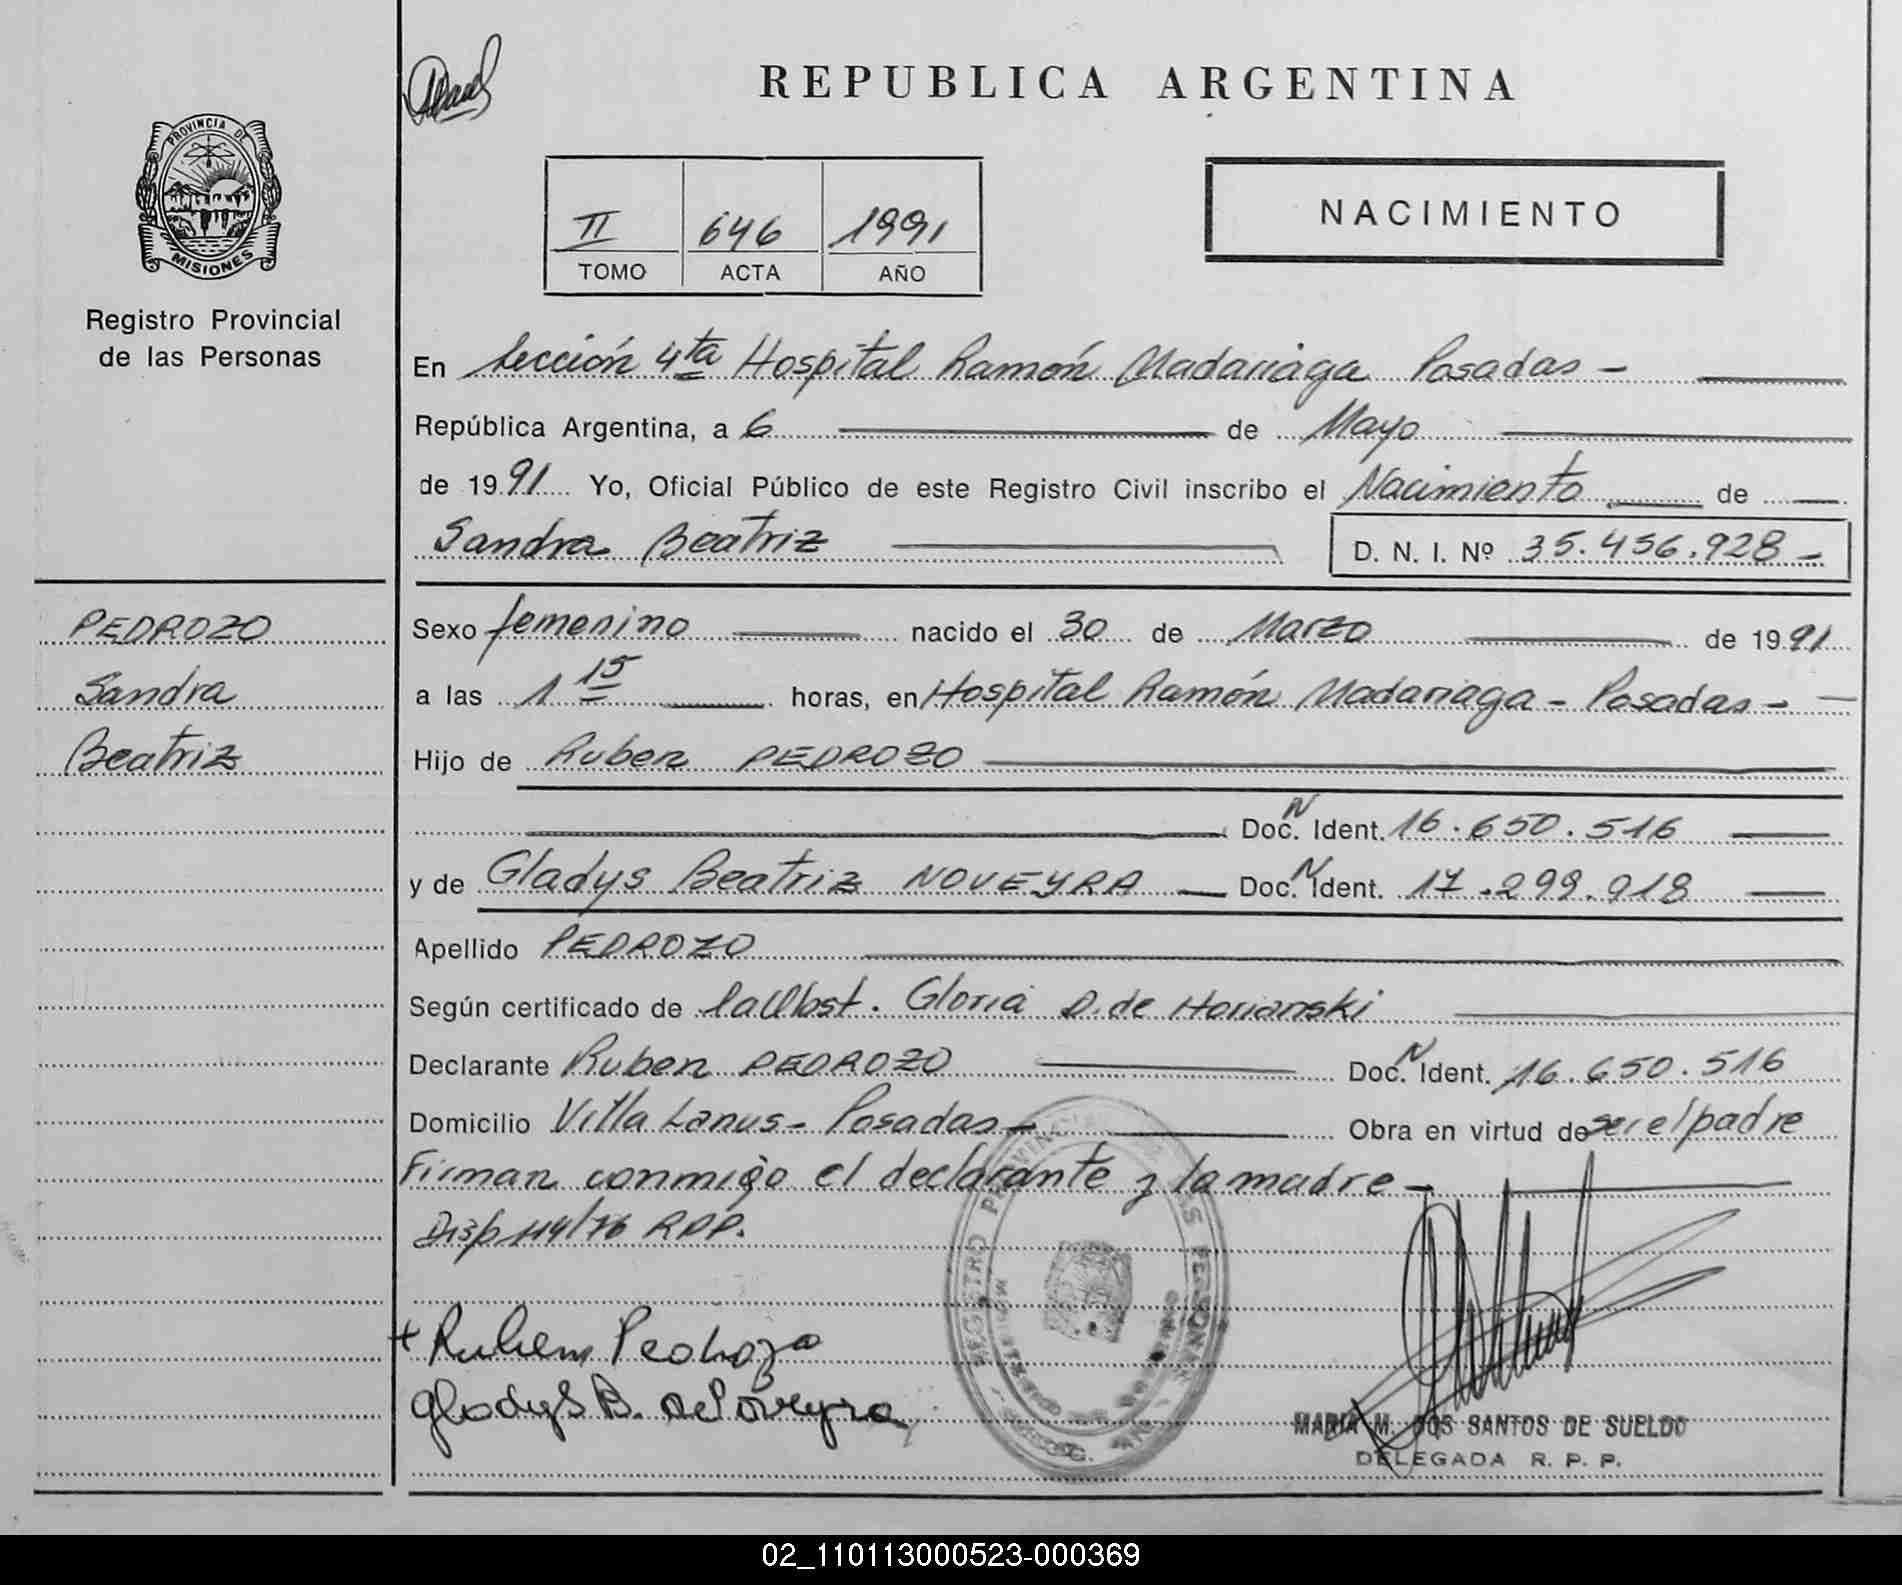 REPUBLICA ARGENTINA
PROVINCIA DE
MISIONES
Registro Provincial
de las Personas
II 646 1991
TOMO ACTA AÑO
NACIMIENTO
En Sección 4ta Hospital Ramón Madariaga Posadas -
República Argentina, a 6 de Mayo
de 1991 Yo, Oficial Público de este Registro Civil inscribo el Nacimiento de
Sandra Beatriz
D. N. I. Nº 35.456.928 -
PEDROZO
Sandra
Beatriz
Sexo femenino nacido el 30 de Marzo de 1991
a las 1 15 horas, en Hospital Ramón Madariaga - Posadas -
Hijo de Ruben PEDROZO
Doc. N Ident. 16.650.516
y de Gladys Beatriz NOVEYRA Doc. N Ident. 17.299.918
Apellido PEDROZO
Según certificado de la Obst. Gloria D. de Horianski
Declarante Ruben PEDROZO Doc. N Ident. 16.650.516
Domicilio Villa Lanus - Posadas - Obra en virtud de ser el padre
Firman conmigo el declarante y la madre -
Disp 114/76 RPP.
+ Ruben Pedrozo
Gladys B. Noveyra
REGISTRO PROVINCIAL DE LAS PERSONAS
MARIA M. DOS SANTOS DE SUELDO
DELEGADA R. P. P.
02_110113000523-000369